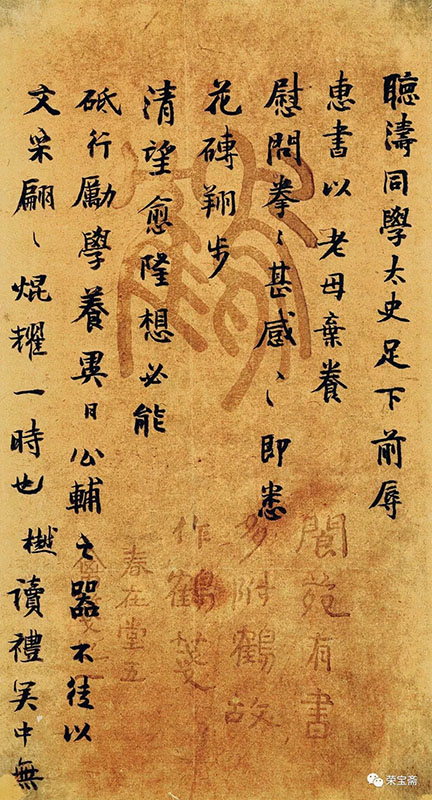 聽濤同學太史足下前辱
惠書以 老母棄養
慰問拳〻甚感〻即悉
花磚翔步
清望愈隆想必能
砥行勵學養異日公輔之器不徒以
文采翩〻焜耀一時也 樾讀禮吳中無
閬苑有書
多附鶴故
作鶴箋
春在堂五
荣宝斋